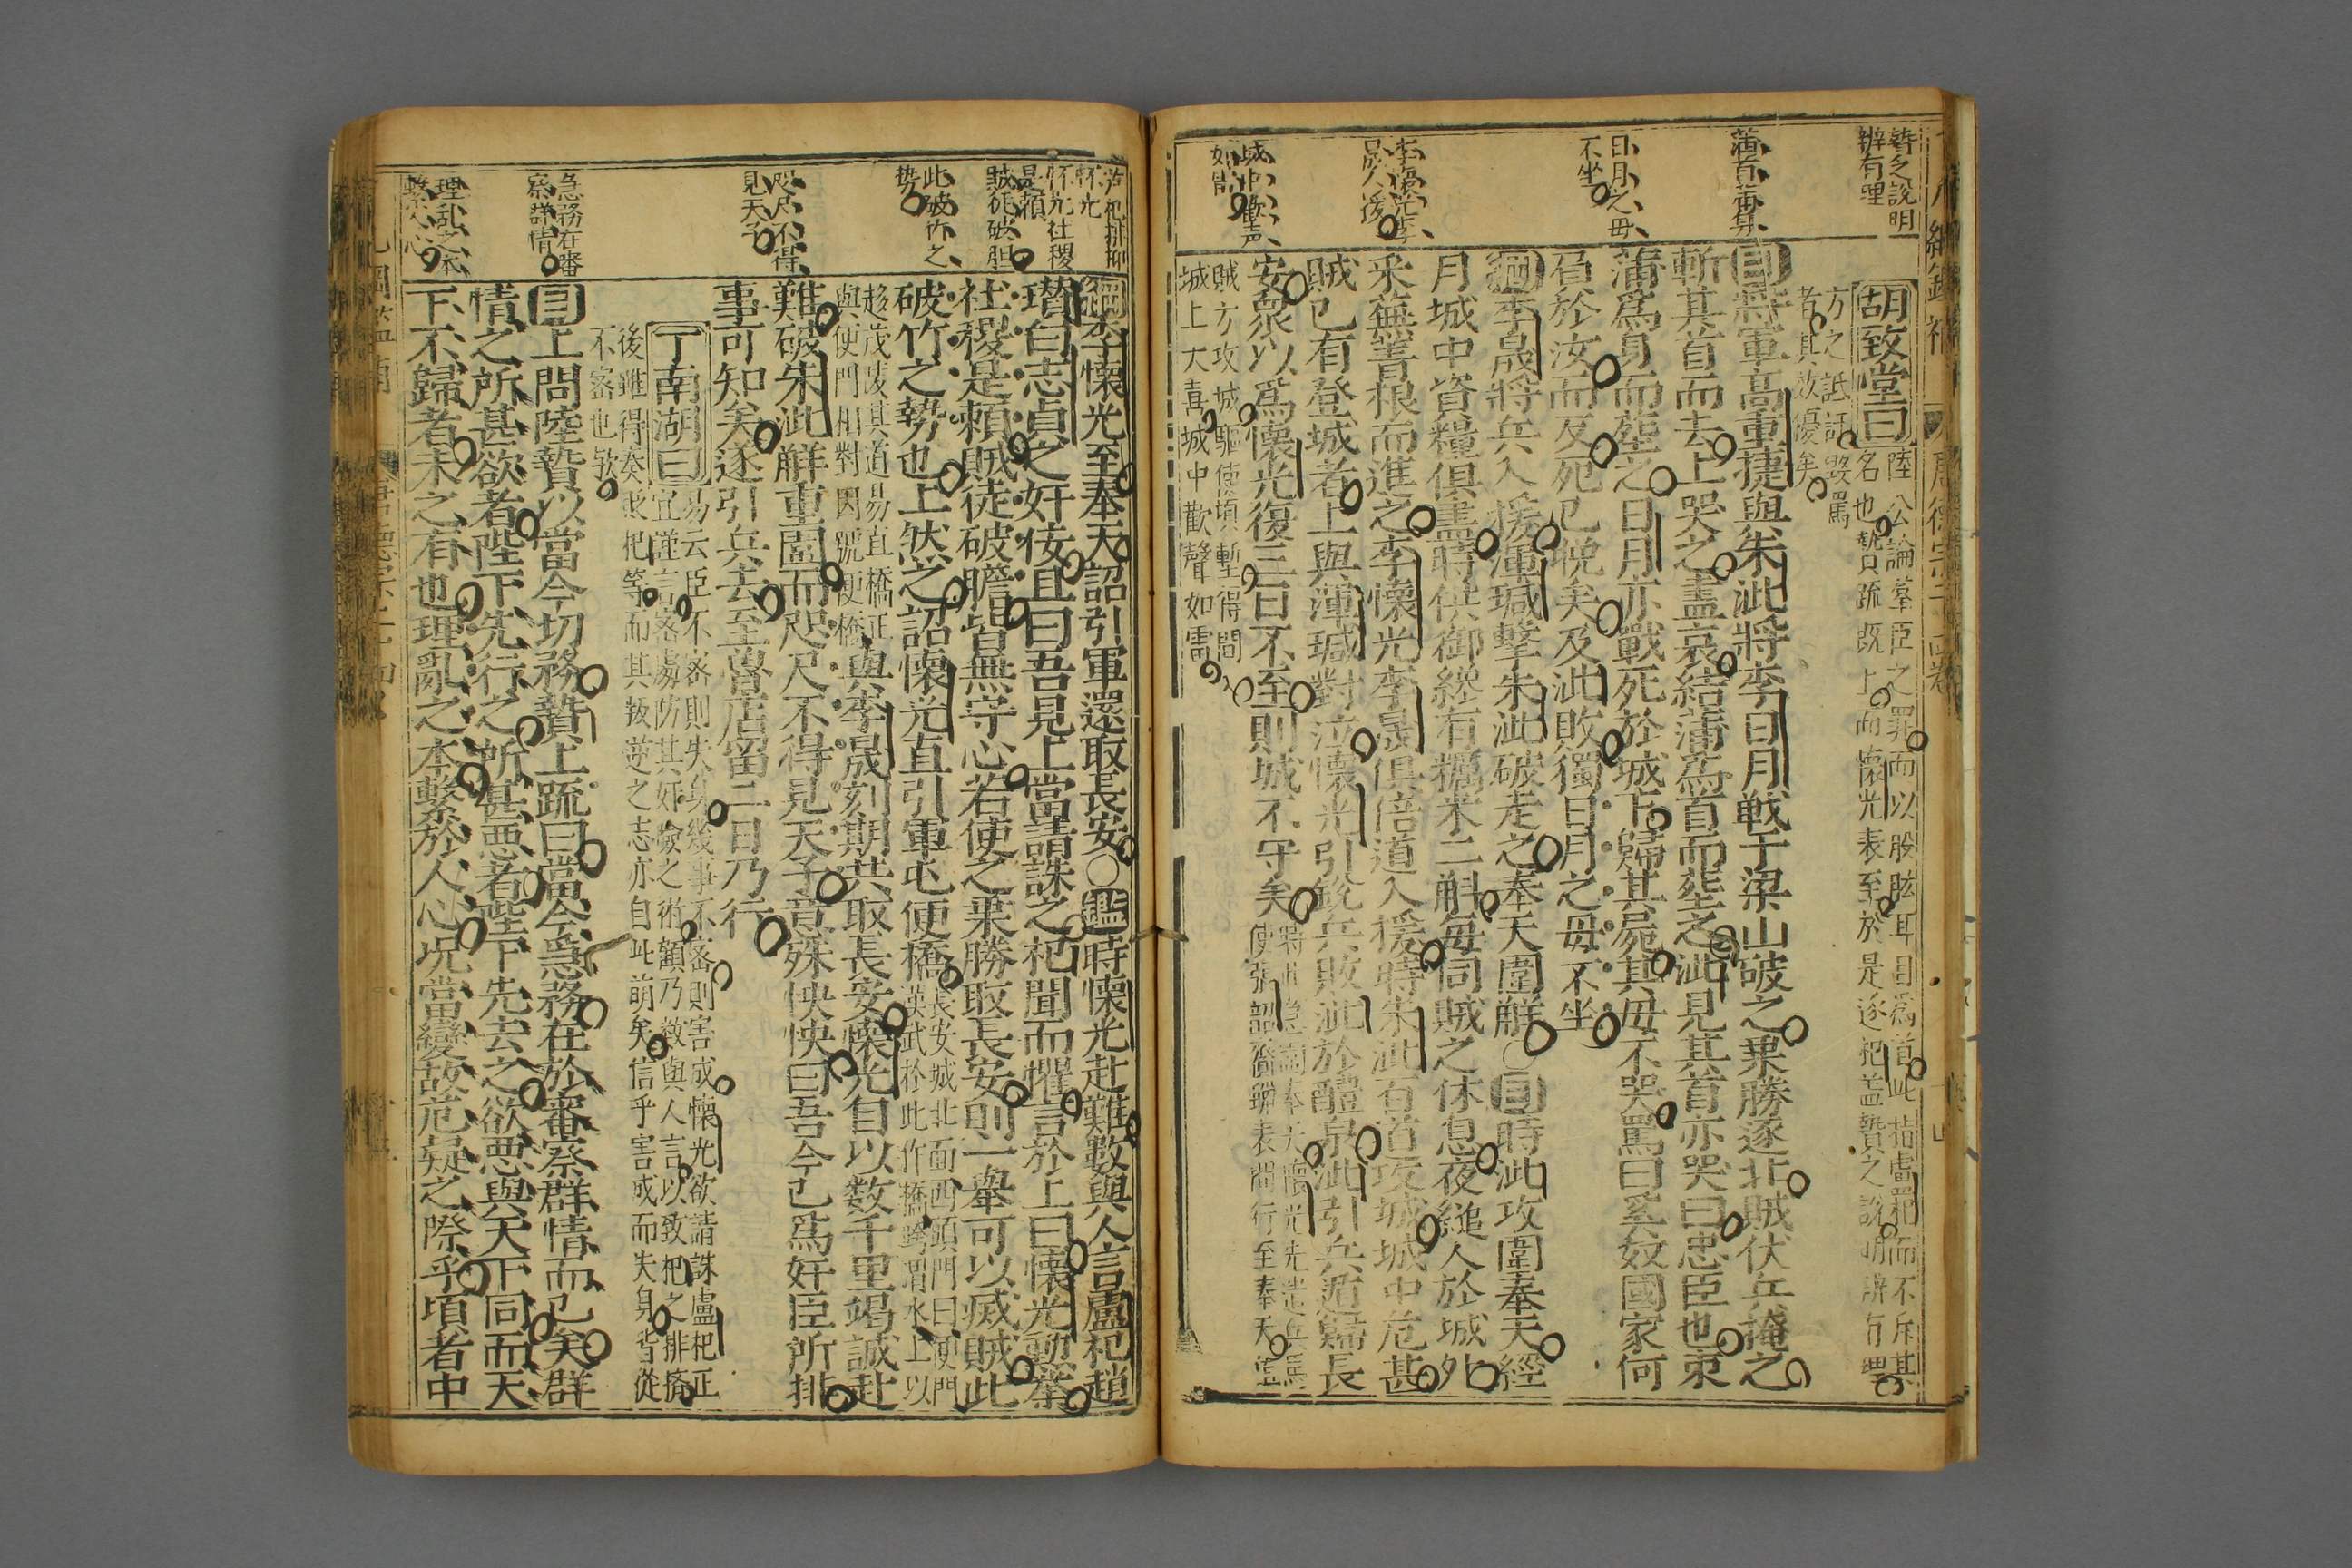 贄之說明
辨有理
蒲首而葬
日月之母
不坐
李懷光李
晟入援
城中歡声
如雷
胡致堂曰
陸公論羣臣之罪而以股肱耳目爲首此指盧杞而不斥其
名也贄疏既上而懷光表至於是逐杞盖贄之說明辨有理
方之詆訐毀罵
者其效優矣
目將軍高重捷與朱泚將李日月戰于梁山破之乗勝逐北賊伏兵掩之
斬其首而去上哭之盡哀結蒲爲首而塟之泚見其首亦哭曰忠臣也束
蒲爲身而塟之日月亦戰死於城下歸其屍其母不哭罵曰奚奴國家何
負於汝而反死已晚矣及泚敗獨日月之母不坐
綱李晟將兵入援渾瑊擊朱泚破走之奉天圍解○目時泚攻圍奉天經
月城中資糧俱盡時供御纔有糲米二斛每伺賊之休息夜縋人於城外
采蕪菁根而進之李懷光李晟俱倍道入援時朱泚百道攻城城中危甚
賊已有登城者上與渾瑊對泣懷光引銳兵敗泚於醴泉泚引兵遁歸長
安衆以爲懷光復三日不至則城不守矣
懷光先遣兵馬
使張韶齎蠟表間行至奉天值
賊方攻城驅使填塹得間
城上大喜城中歡聲如雷
若杞排抑
怀光
怀光社稷
是賴
賊徒破胆
此破竹之
势
咫尺不得
見天子
急務在審
察群情
理乱之本
繫人心
綱李懷光至奉天詔引軍還取長安○鑑時懷光赴難數與人言盧杞趙
瓚白志貞之奸佞且曰吾見上當請誅之杞聞而懼言於上曰懷光勳業
社稷是頼賊徒破膽皆無守心若使之乗勝取長安則一舉可以滅賊此
破竹之勢也上然之詔懷光直引軍屯便橋
長安城北面西頭門曰便門
漢武於此作橋跨渭水上以
趍茂陵其道易直橋正
與便門相對因號便橋
與李晟刻期共取長安懷光自以数千里竭誠赴
難破朱泚解重圍而咫尺不得見天子意殊怏怏曰吾今已爲奸臣所排
事可知矣遂引兵去至魯店留二日乃行
丁南湖曰
易云臣不密則失身幾事不密則害成懷光欲請誅盧杞正
宜謹言密慮防其奸險之術顧乃数與人言以致杞之排擠
後雖得奏貶杞等而其叛逆之志亦自此萌矣信乎害成而失身皆從
不密也欤
目上問陸贄以當今切務贄上疏曰當今急務在於審察群情而已矣群
情之所甚欲者陛下先行之所甚惡者陛下先去之欲惡與天下同而天
下不歸者未之有也理亂之本繫於人心况當變故危疑之際乎頃者中